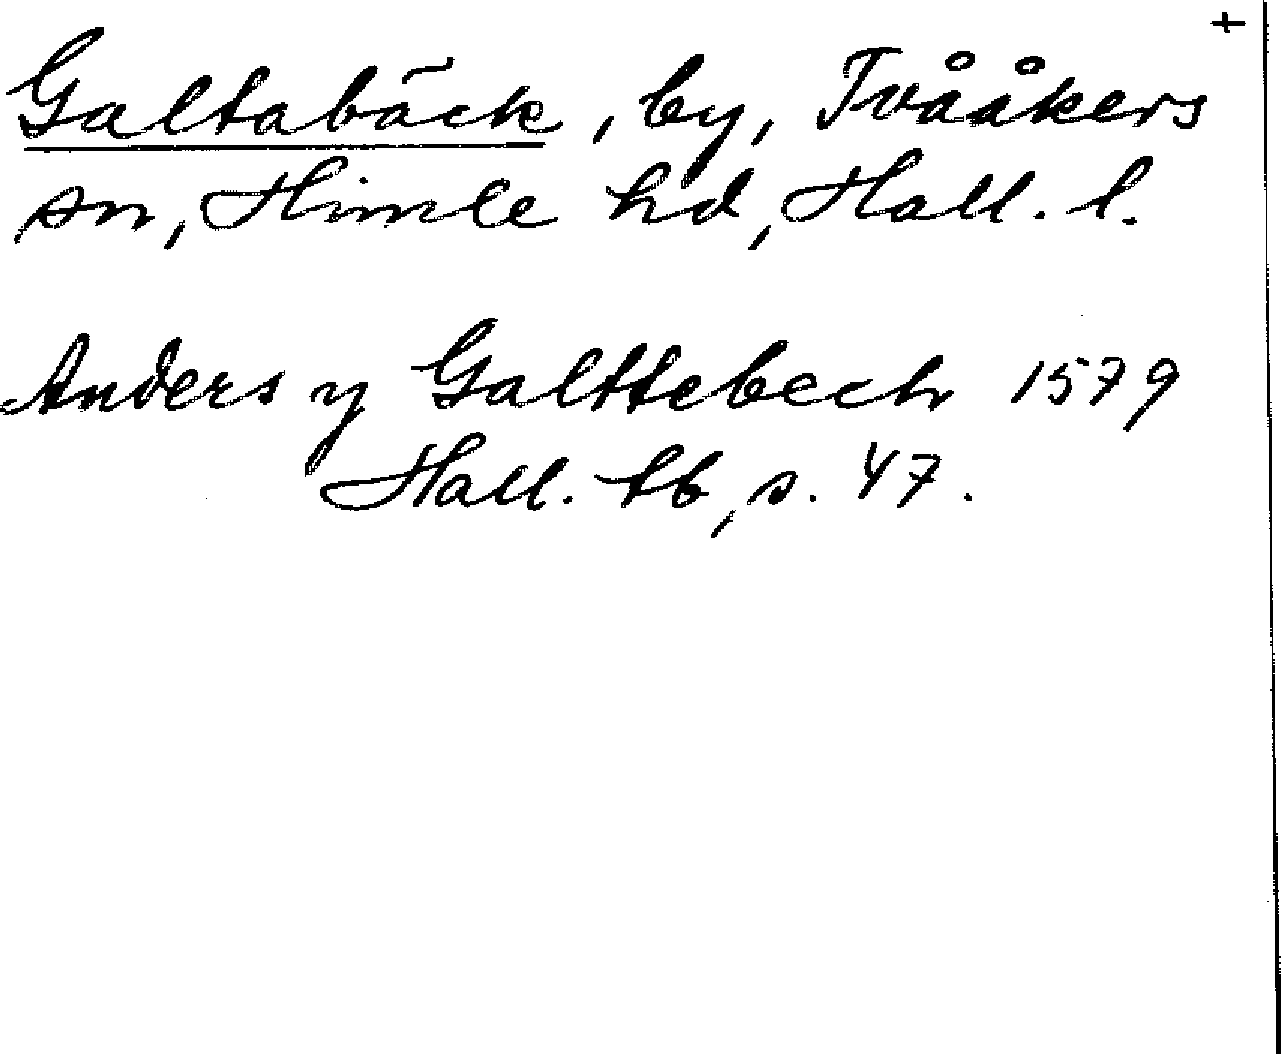 +
Galtabäck, by, Tvååkers
sn, Himle hd, Hall. l.
Anders y Galttebech 1579
Hall. tb, s. 47.